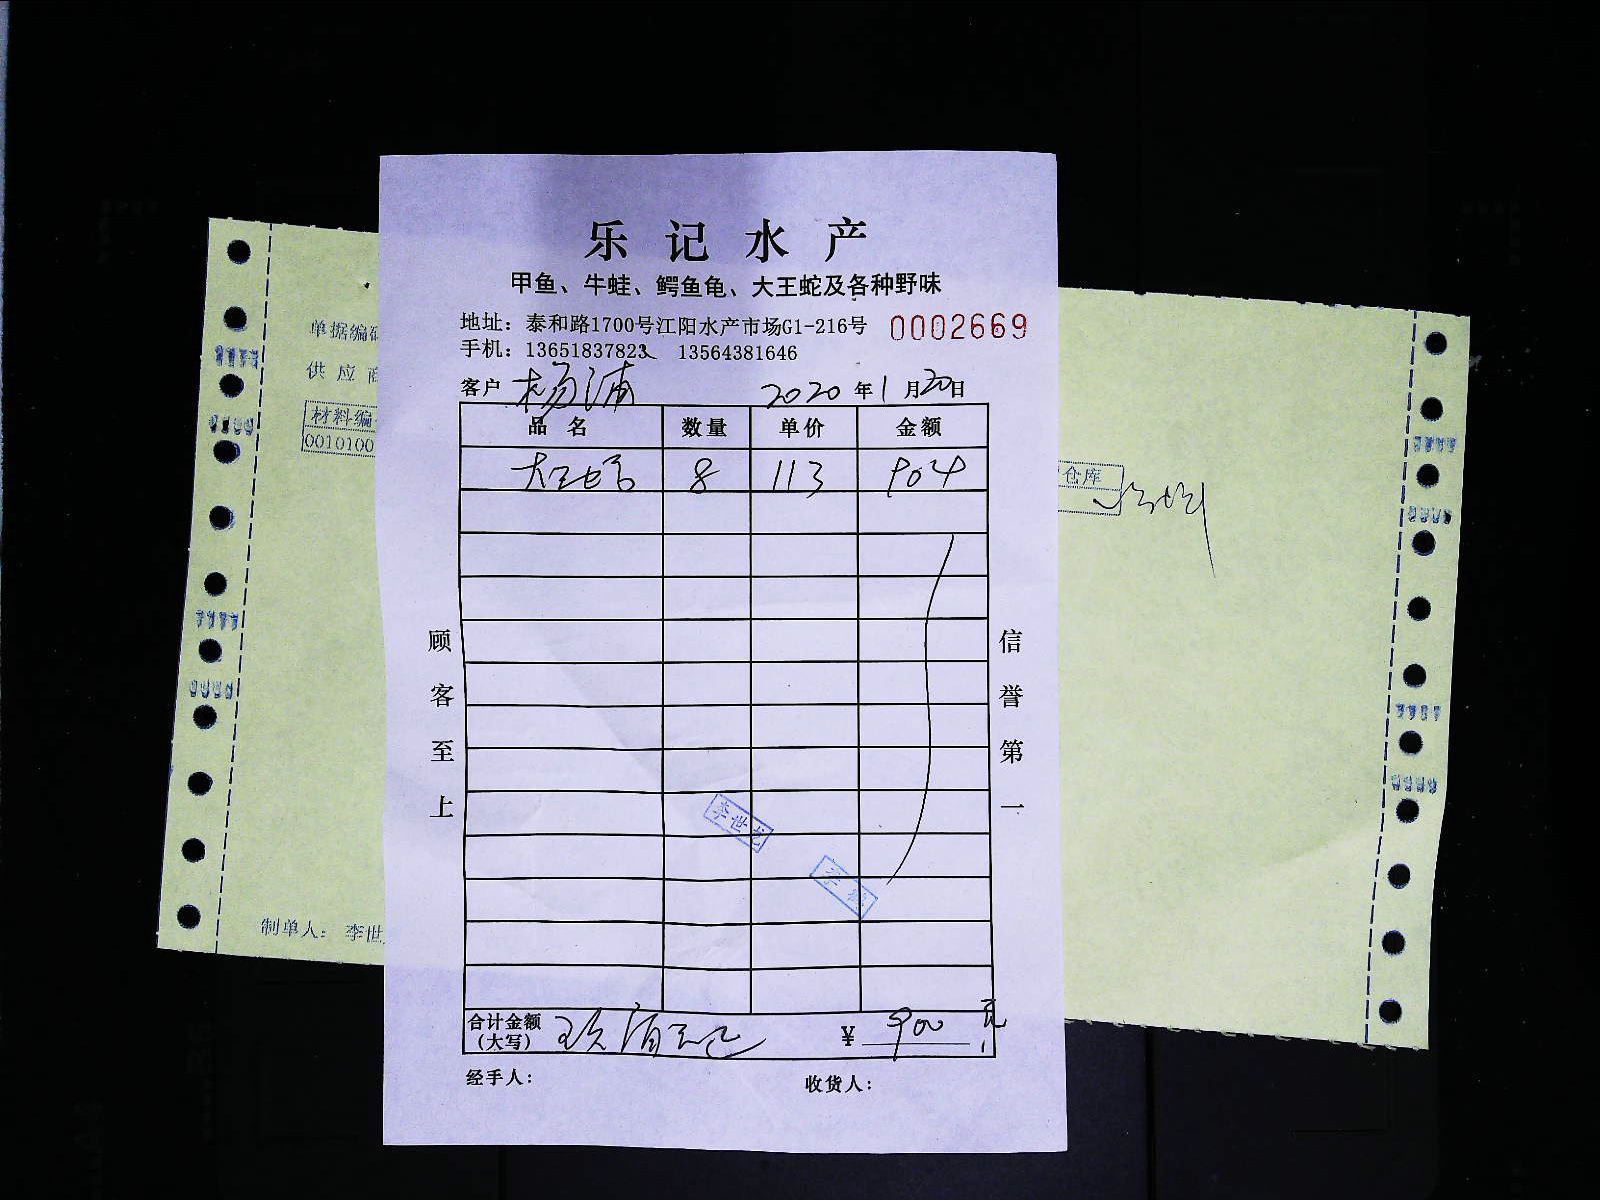 乐记水产
甲鱼、牛蛙、鳄鱼龟、大王蛇及各种野味
地址：泰和路1700号江阳水产市场G1-216号 0002669
手机：13651837823 13564381646
客户 杨浦 2020年1月20日
品名 数量 单价 金额
大王蛇 8 113 904
顾客至上
信誉第一
李世龙
合计金额（大写） 玖佰元正 ¥ 900元
经手人：
收货人：
单据编
供应商
材料编
0010100
仓库
制单人：李世